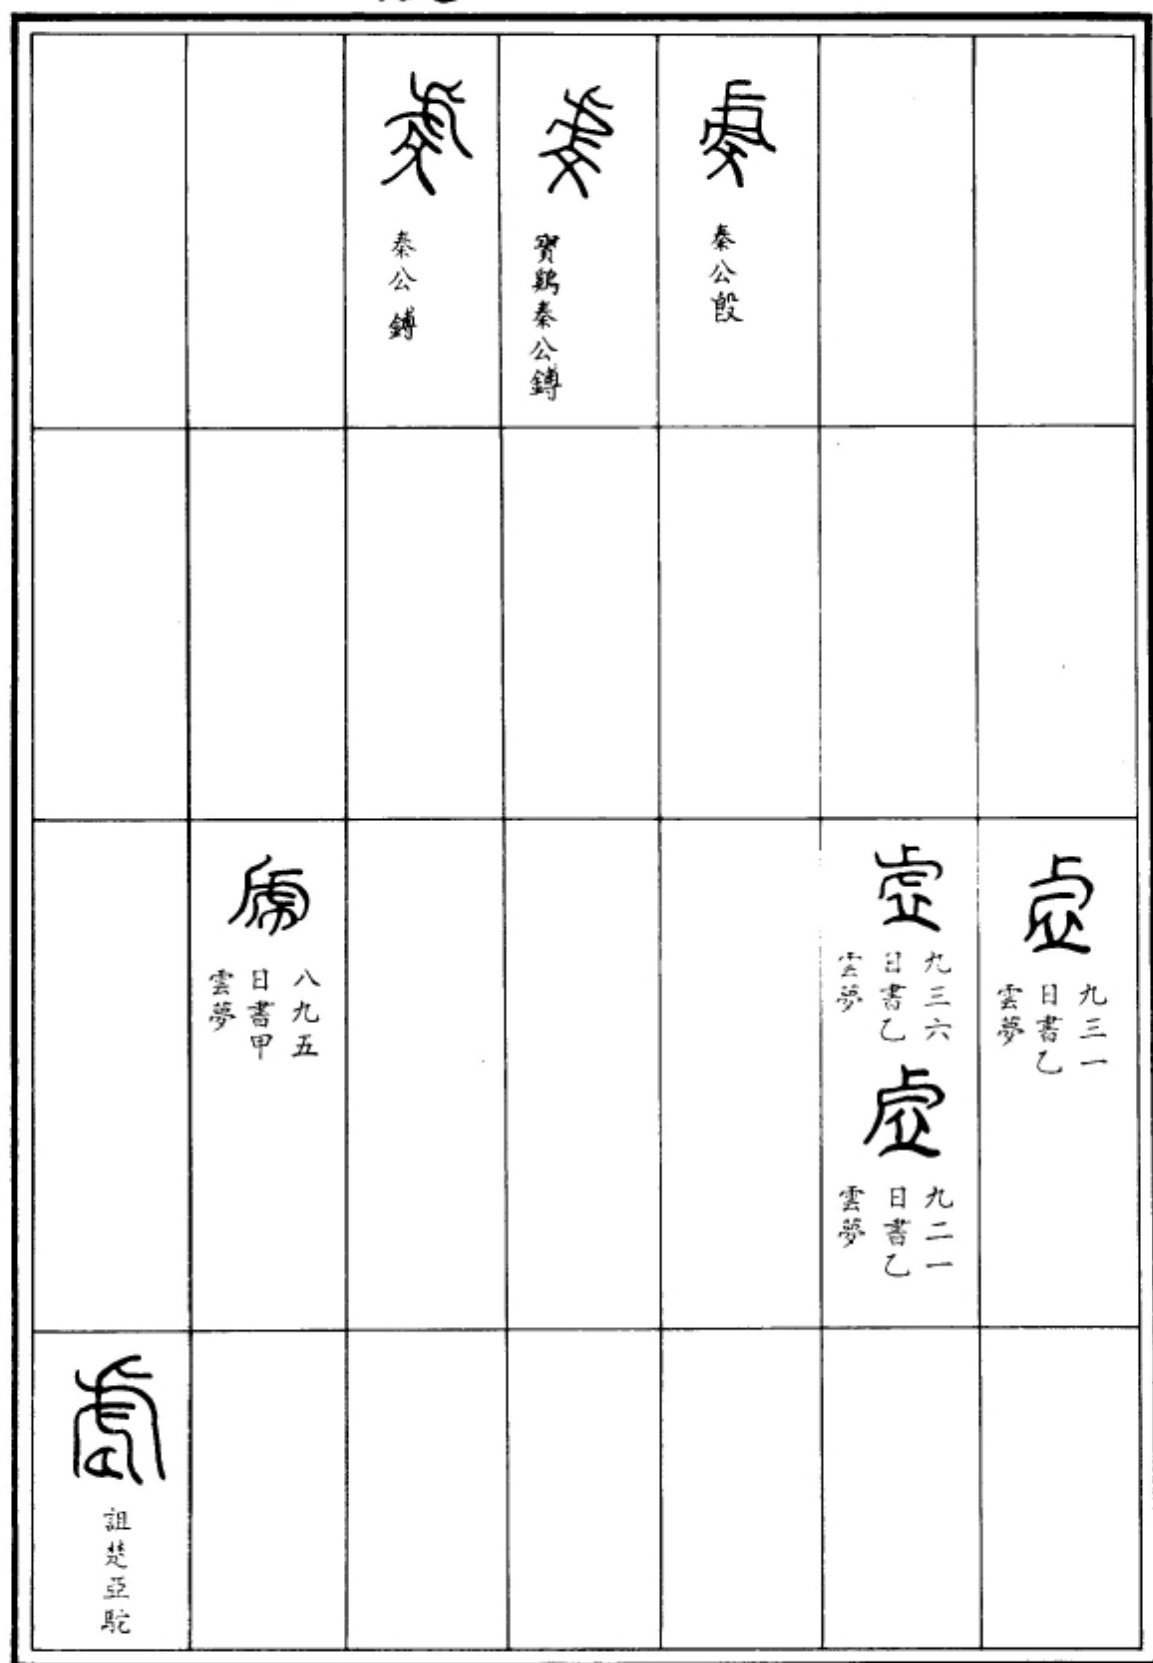 虔
秦公𣪘
虔
寶鷄秦公鎛
虔
秦公鎛
虛
九三一
日書乙
雲夢
虛
九三六
日書乙
雲夢
虛
九二一
日書乙
雲夢
八九五
日書甲
雲夢
詛楚亞駝